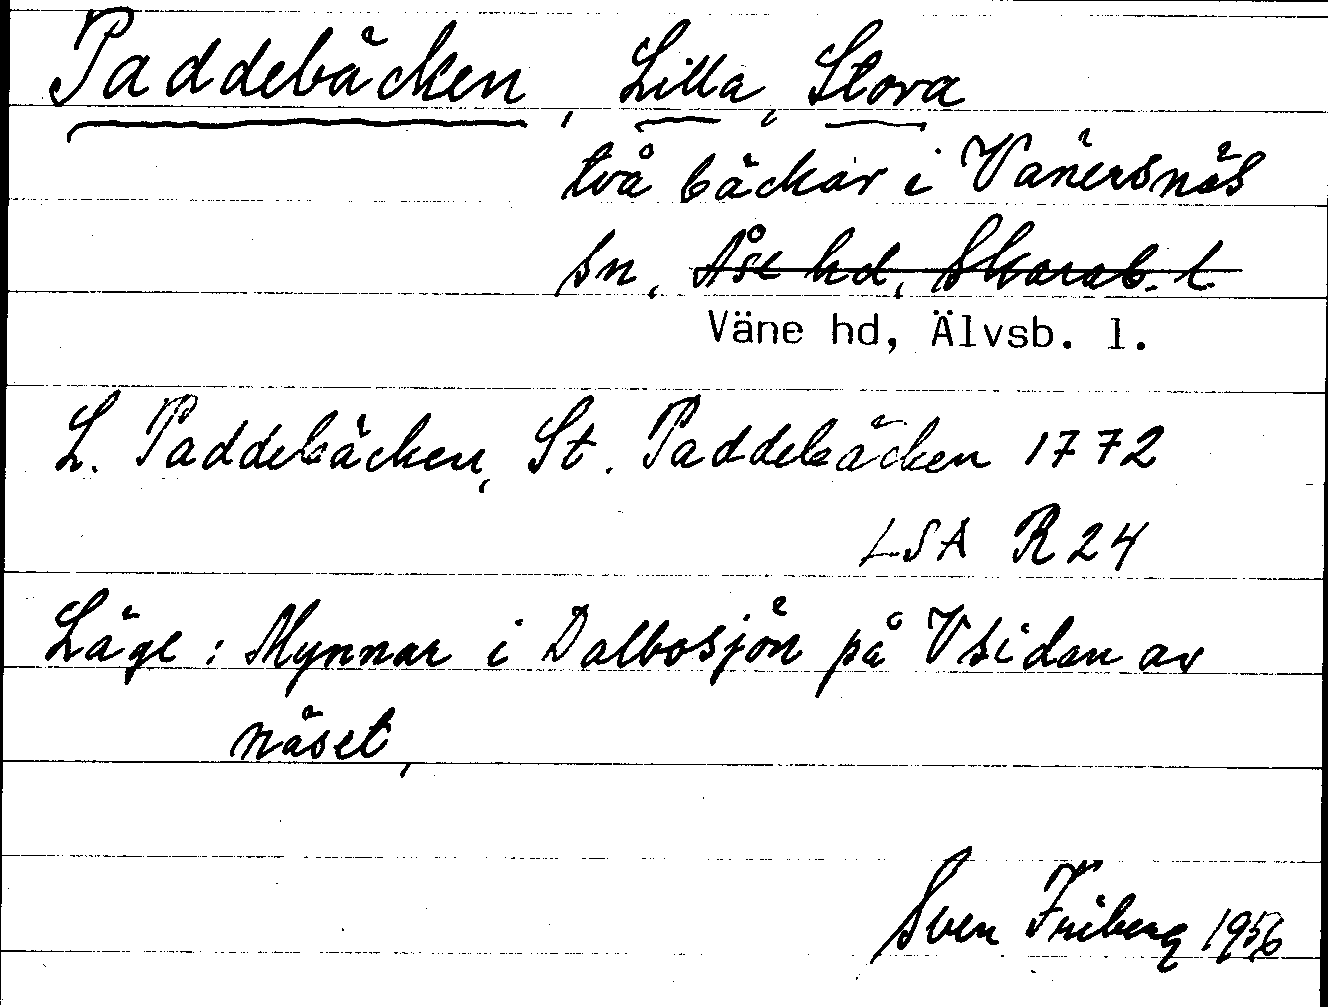 Paddebäcken, Lilla, Stora
två bäckar i Vänersnäs
sn, Åse hd, Skarab. l.
Väne hd, Älvsb. l.
L. Paddebäcken, St. Paddebäcken 1772
LSA R24
Läge: Mynnar i Dalbosjön på Vsidan av
näset,
Sven Friberg 1956